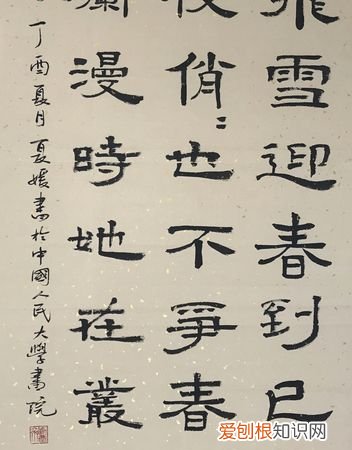 飛雪迎春到已
枝俏〻也不爭春
爛漫時她在叢
丁酉夏月夏媛書於中國人民大學書院
爱刨根知识网